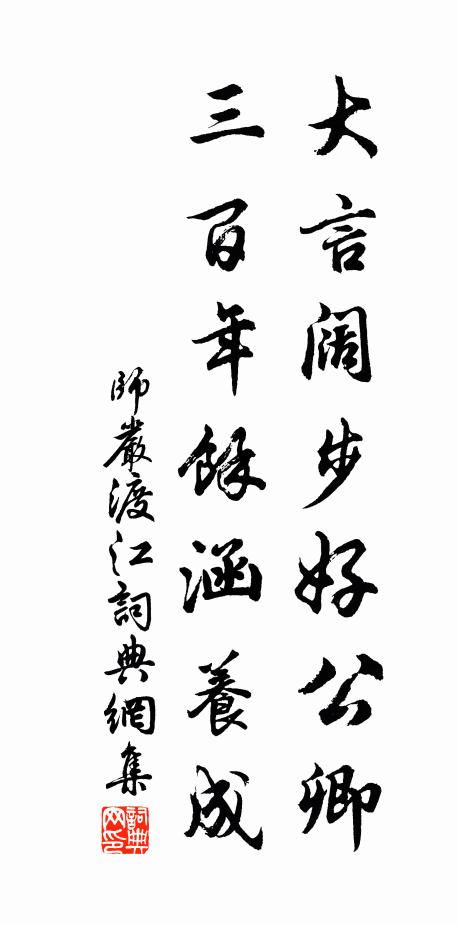 大言阔步好公卿
三百年餘涵養成
師嚴渡江詞典網集
詞典
网印